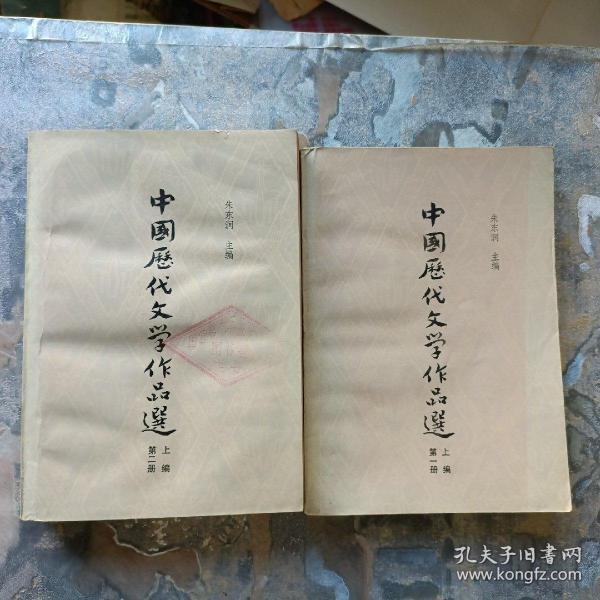 朱东润 主编
中國歷代文学作品選
上编
第二册
朱东润 主编
中國歷代文学作品選
上编
第一册
孔夫子旧书网
www.kongfz.com